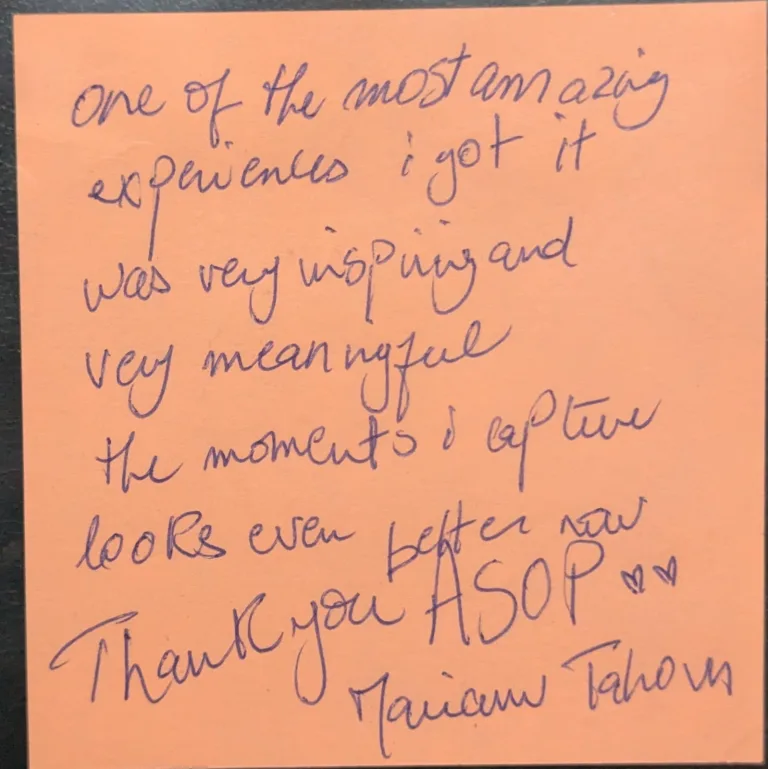 one of the most amazing
experiences i got it
was very inspiring and
very meaningful
the moments i capture
looks even better now
Thank you ASOP ♥♥